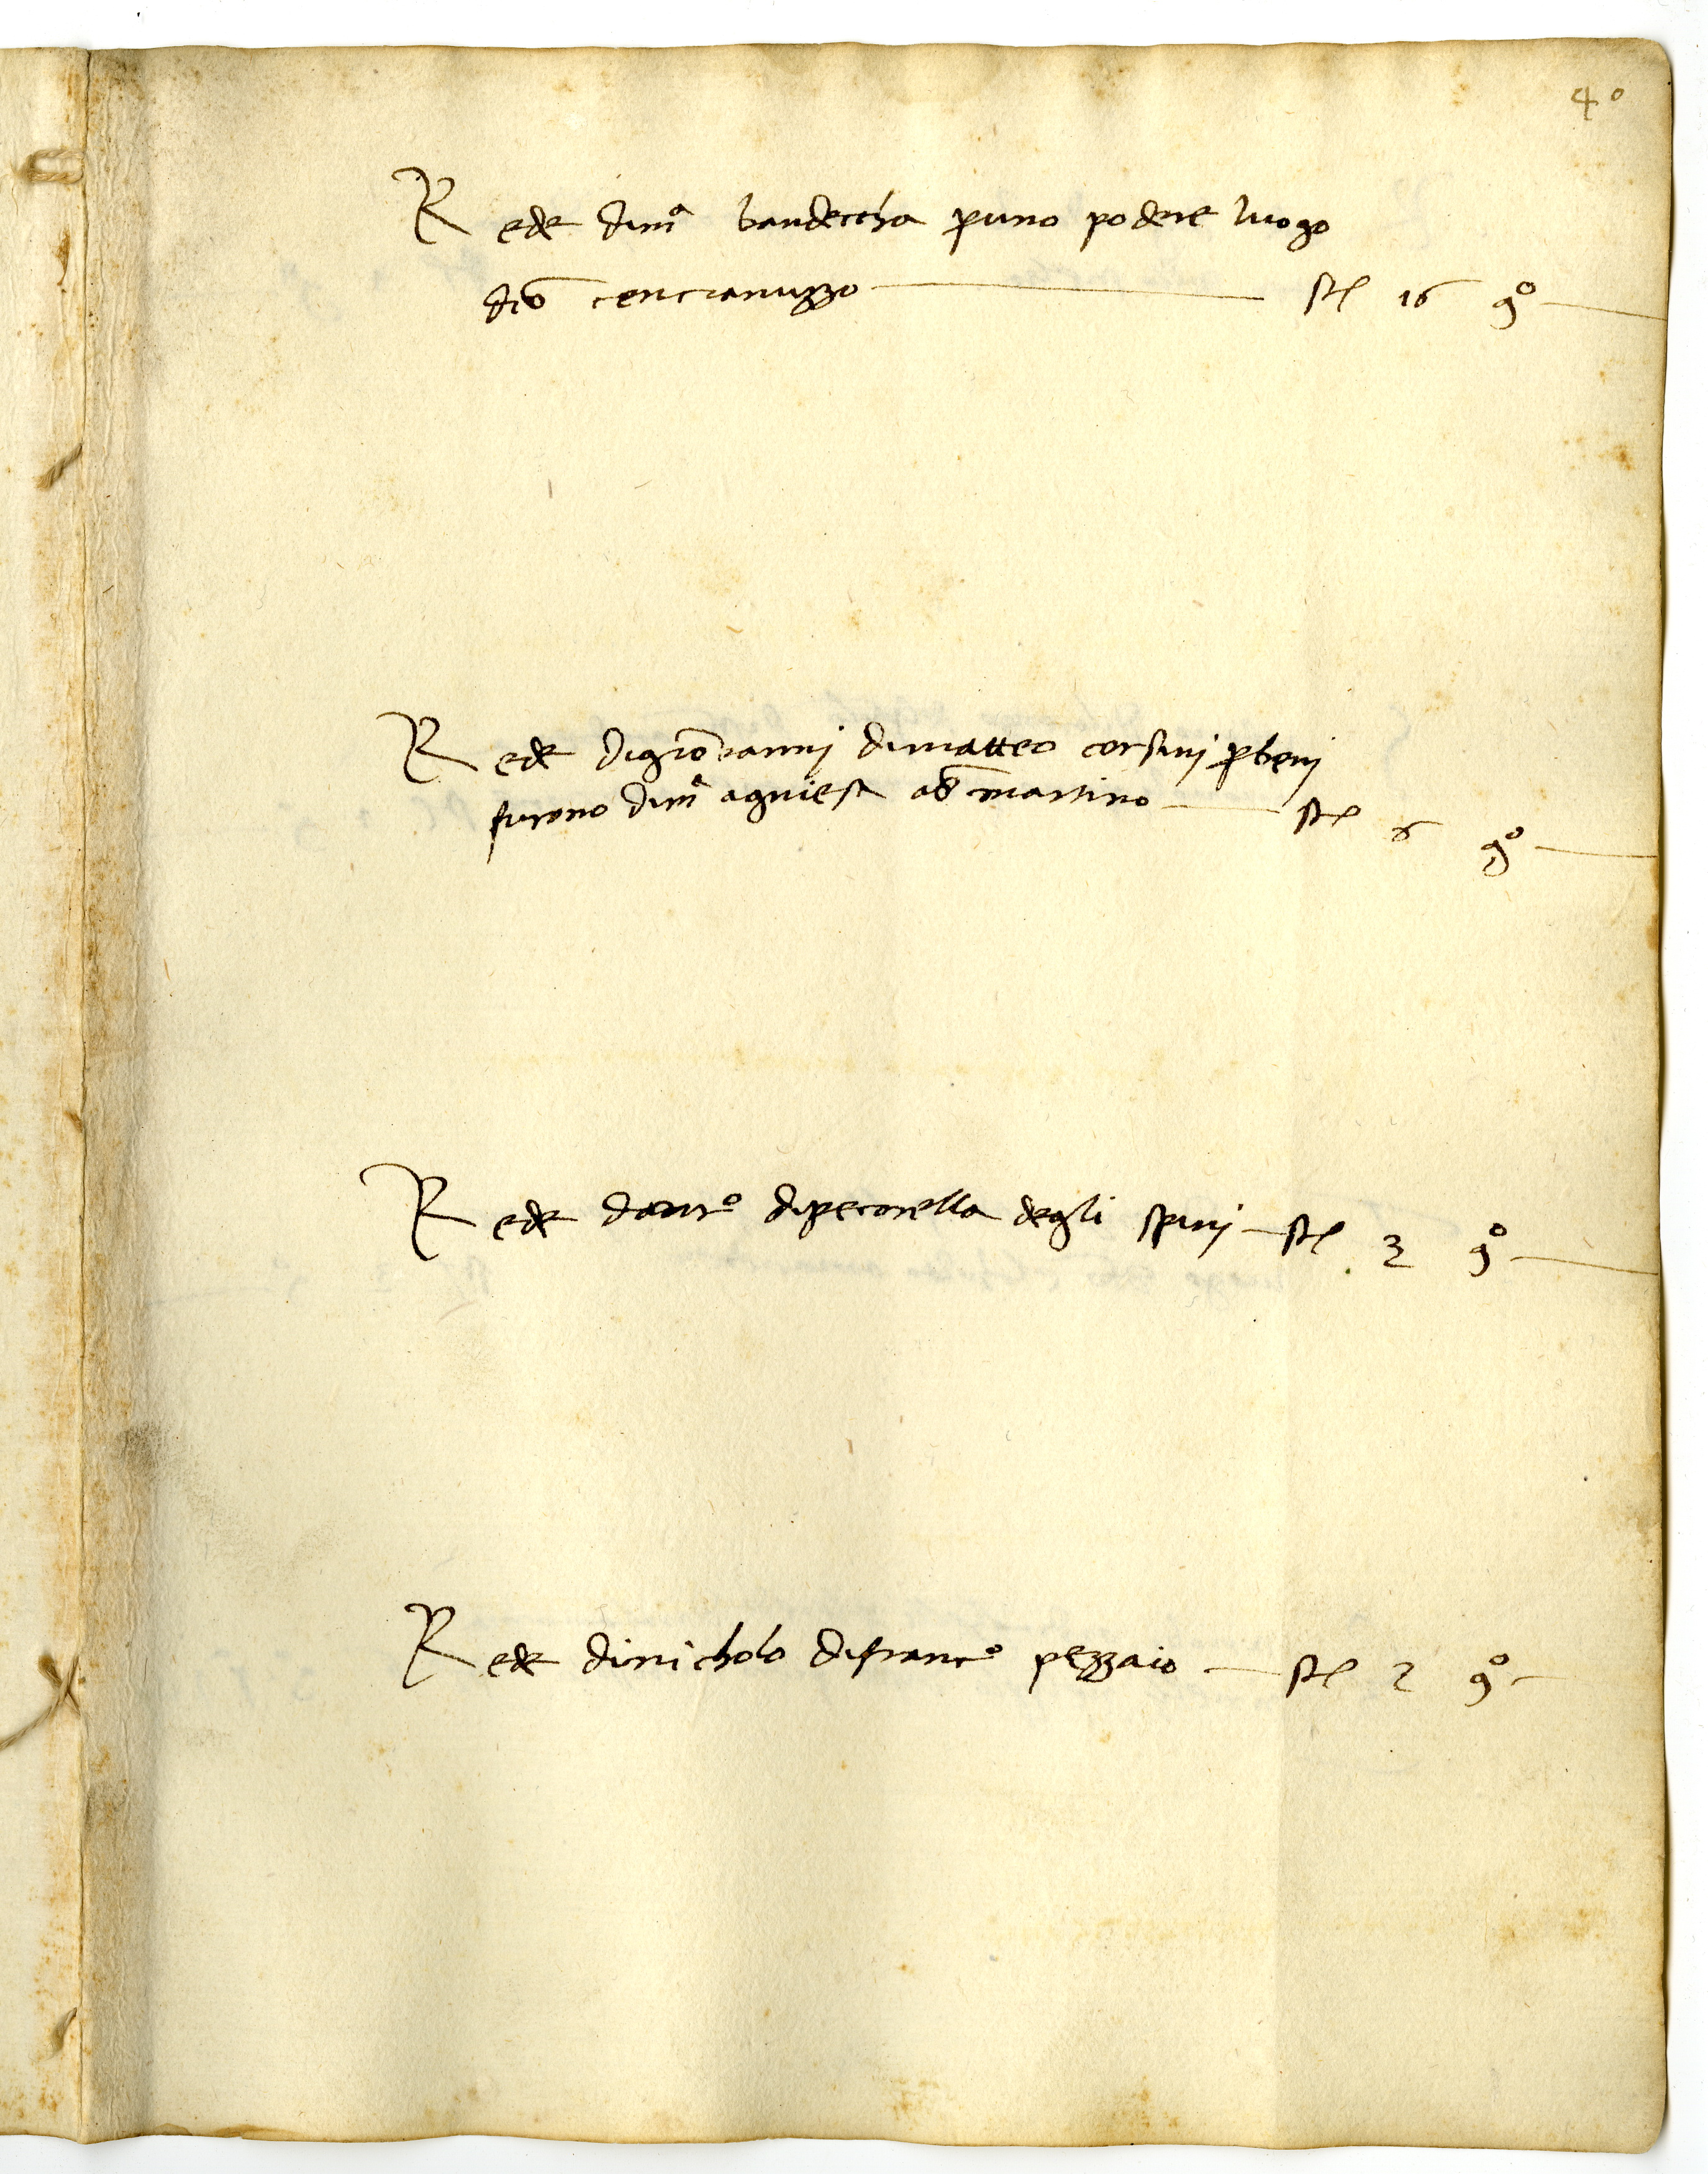 4°
Rede dimª bandeccha p uno podere luogo
dcō cencianuzzo st 16 gº
Rede digiovanni dimatteo corsini p beni
furono dimª agniesa a sº martino st 6 gº
Rede dantº dipecorella degli spinj st 3 gº
Rede dinicholo difrancº pezzaio st 2 gº